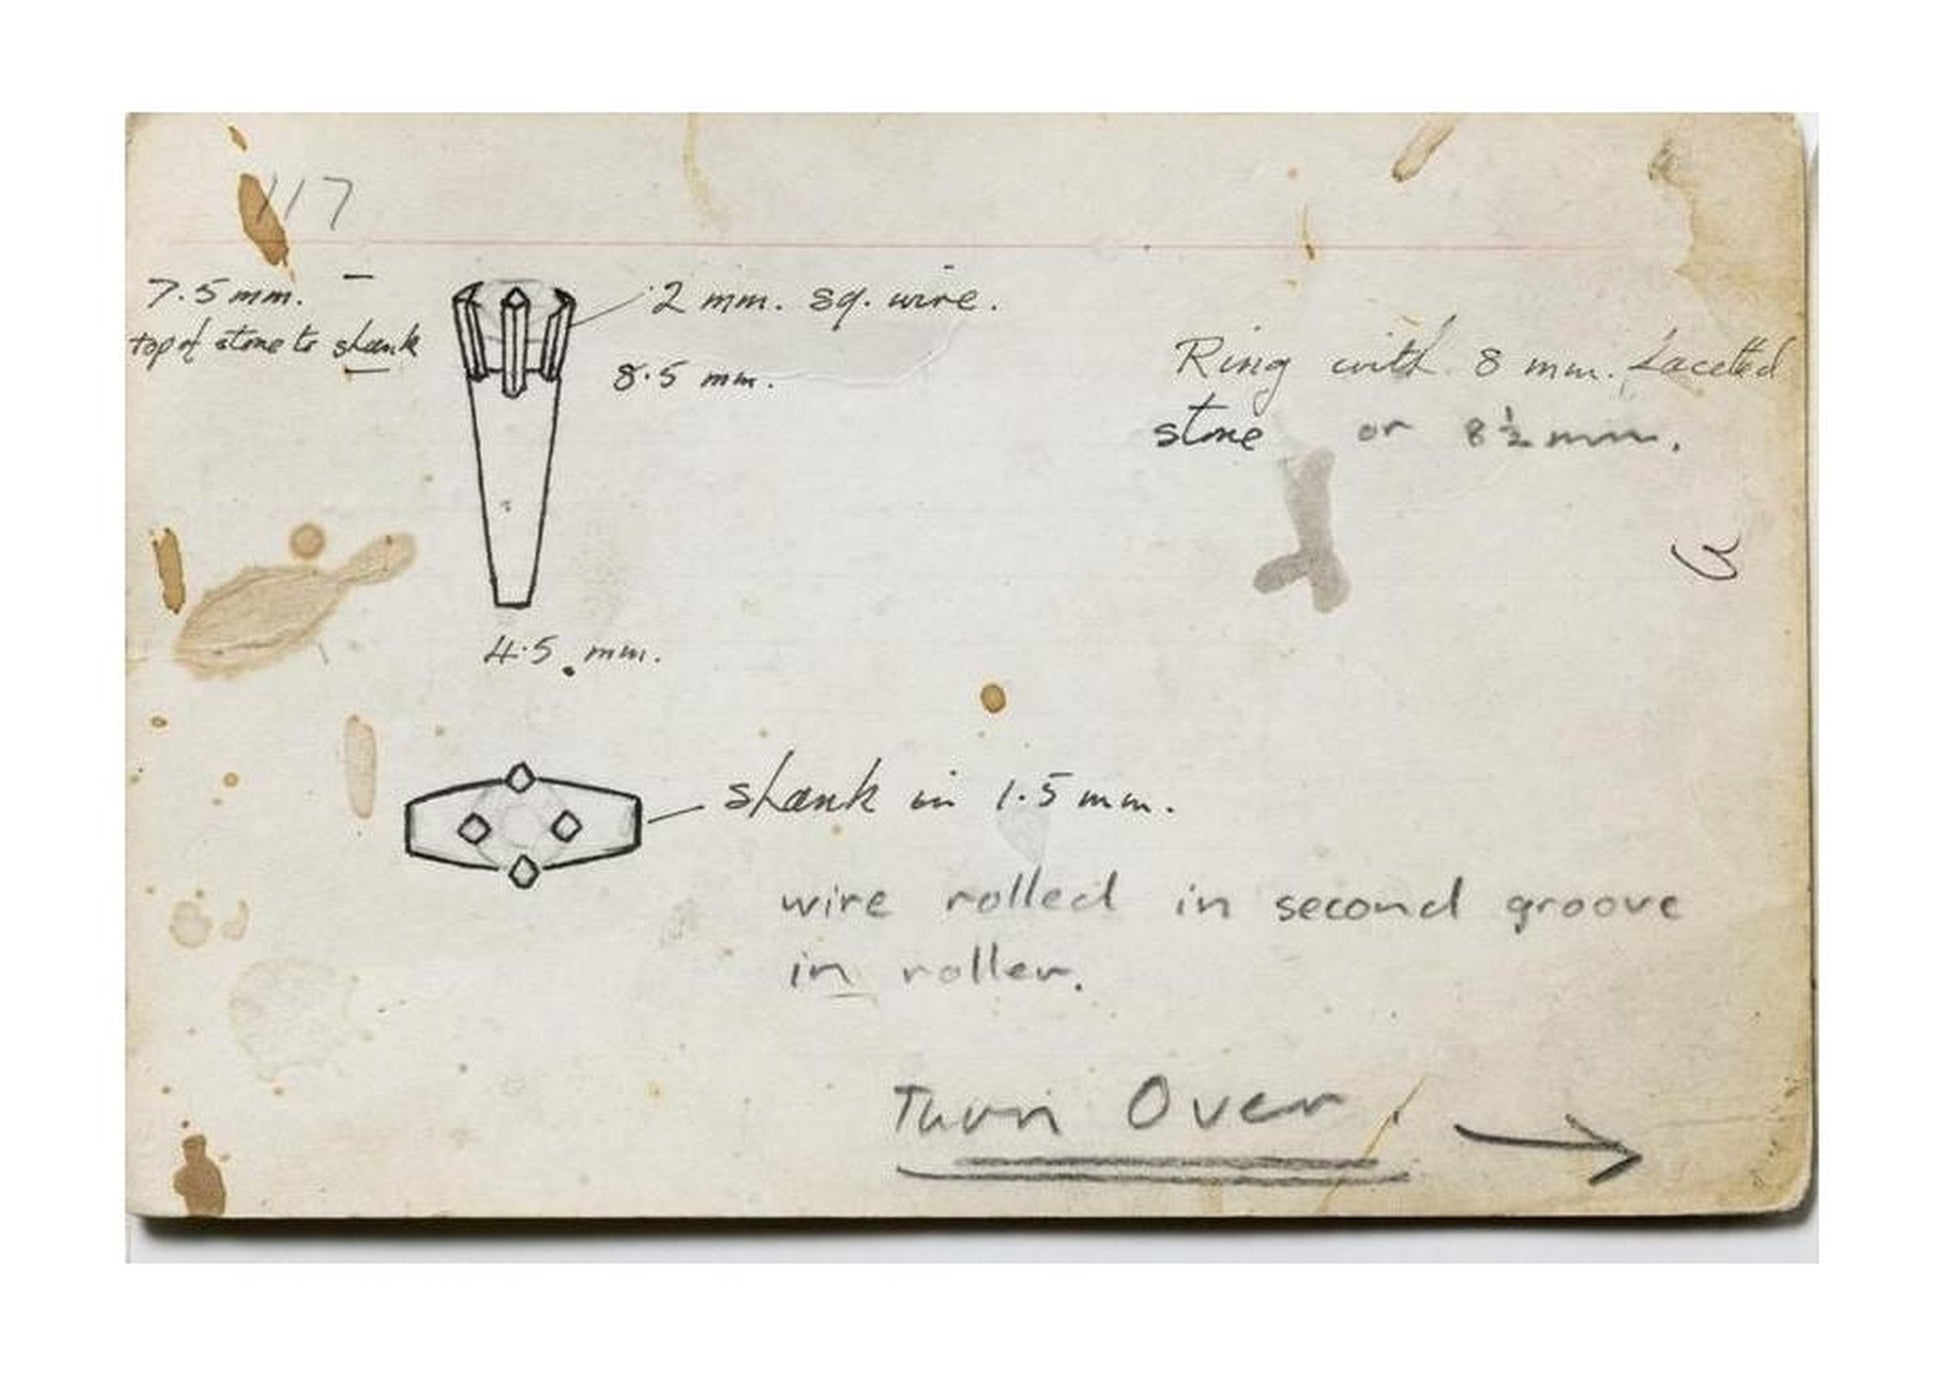 117
7.5 mm.
top of stone to shank
2 mm. sq. wire.
8.5 mm.
Ring with 8 mm. facetted
stone or 8½ mm.
4.5 mm.
shank in 1.5 mm.
wire rolled in second groove
in roller.
Turn Over